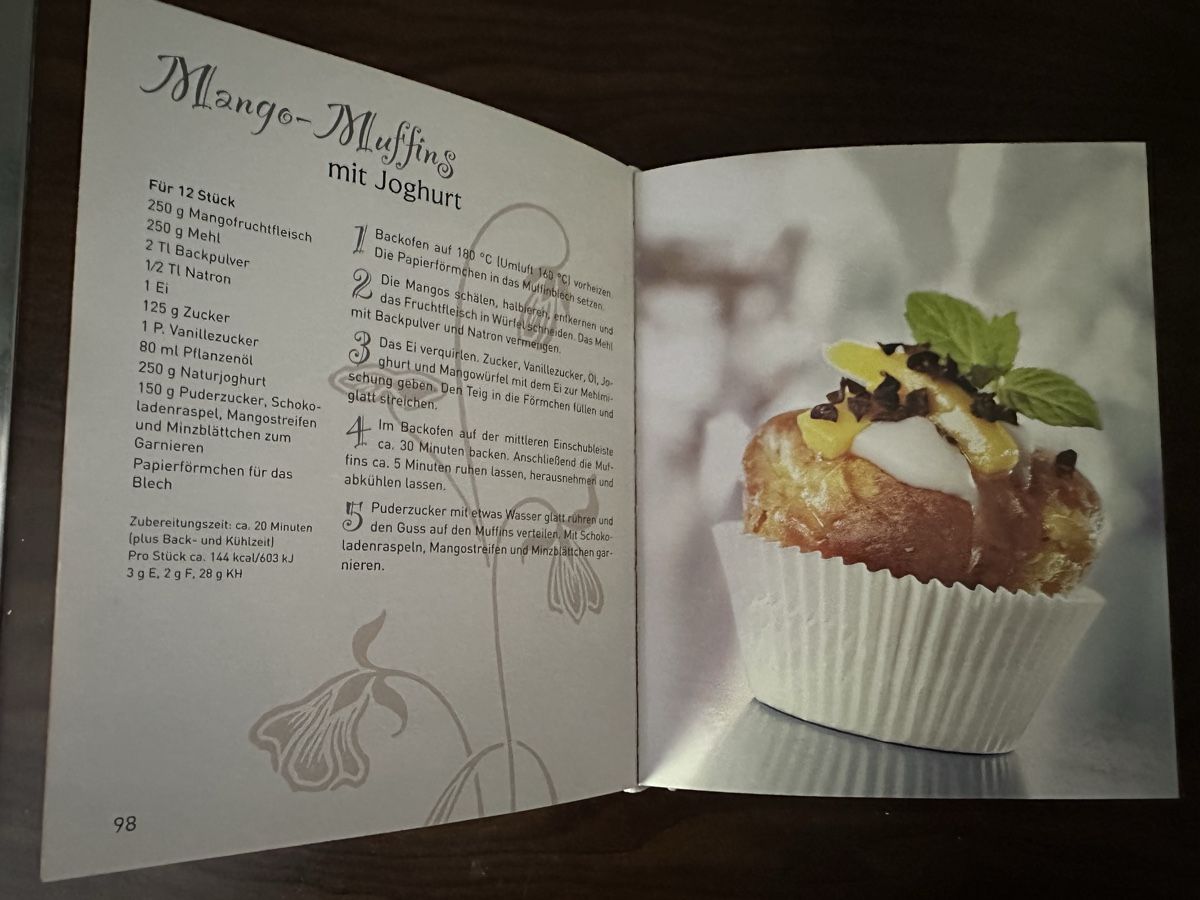 Mango-Muffins
mit Joghurt
Für 12 Stück
250 g Mangofruchtfleisch
250 g Mehl
2 Tl Backpulver
1/2 Tl Natron
1 Ei
125 g Zucker
1 P. Vanillezucker
80 ml Pflanzenöl
250 g Naturjoghurt
150 g Puderzucker, Schoko-
ladenraspel, Mangostreifen
und Minzblättchen zum
Garnieren
Papierförmchen für das
Blech
Zubereitungszeit: ca. 20 Minuten
(plus Back- und Kühlzeit)
Pro Stück ca. 144 kcal/603 kJ
3 g E, 2 g F, 28 g KH
1 Backofen auf 180 °C (Umluft 160 °C) vorheizen.
Die Papierförmchen in das Muffinblech setzen.
2 Die Mangos schälen, halbieren, entkernen und
das Fruchtfleisch in Würfel schneiden. Das Mehl
mit Backpulver und Natron vermengen.
3 Das Ei verquirlen. Zucker, Vanillezucker, Öl, Jo-
ghurt und Mangowürfel mit dem Ei zur Mehlmi-
schung geben. Den Teig in die Förmchen füllen und
glatt streichen.
4 Im Backofen auf der mittleren Einschubleiste
ca. 30 Minuten backen. Anschließend die Muf-
fins ca. 5 Minuten ruhen lassen, herausnehmen und
abkühlen lassen.
5 Puderzucker mit etwas Wasser glatt rühren und
den Guss auf den Muffins verteilen. Mit Schoko-
ladenraspeln, Mangostreifen und Minzblättchen gar-
nieren.
98